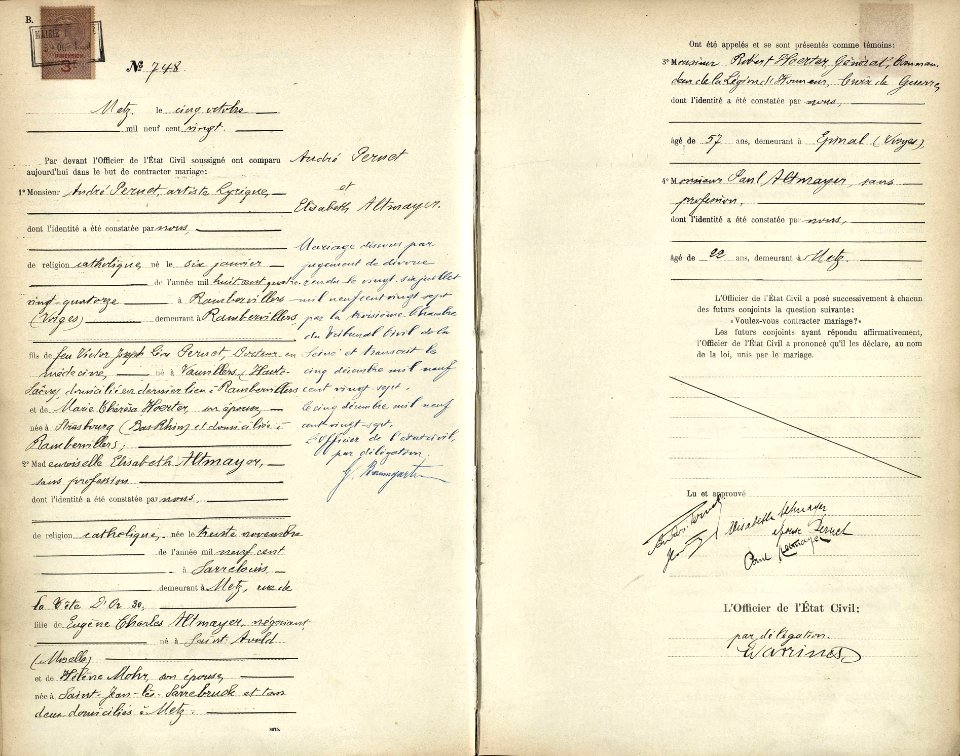 B.
MAIRIE
3
Nº 748.
Metz, le cinq octobre
mil neuf cent vingt.
Par devant l'Officier de l'État Civil soussigné ont comparu
aujourd'hui dans le but de contracter mariage:
1º Monsieur André Pernet, artiste lyrique,
dont l'identité a été constatée par nous,
de religion catholique, né le six janvier
de l'année mil huit cent quatre-
vingt-quatorze à Rambervillers
(Vosges) demeurant à Rambervillers
fils de feu Victor Joseph Léon Pernet, Docteur en
médecine, né à Vauvillers (Haute-
Saône) domicilié en dernier lieu à Rambervillers
et de Marie Thérèse Hoerter, son épouse,
née à Strasbourg (Bas Rhin) et domiciliée à
Rambervillers;
2º Mademoiselle Elisabeth Altmayer,
sans profession
dont l'identité a été constatée par nous,
de religion catholique, née le trente novembre
de l'année mil neuf cent
à Sarrelouis
demeurant à Metz, rue de
la Tête D'Or 30,
fille de Eugène Charles Altmayer, négociant,
né à Saint Avold
(Moselle)
et de Hélène Mohr, son épouse,
née à Saint-Jean-lès-Sarrebruck et tous
deux domiciliés à Metz.
André Pernet
et
Elisabeth Altmayer.
Mariage dissous par
jugement de divorce
rendu le vingt six juillet
mil neuf cent vingt sept
par la troisième Chambre
du Tribunal Civil de la
Seine et transcrit le
cinq décembre mil neuf
cent vingt sept.
Le cinq décembre mil neuf
cent vingt-sept.
L'Officier de l'état civil,
par délégation,
Ont été appelés et se sont présentés comme témoins:
3º Monsieur Robert Hoerter, Général, Comman-
deur de la Légion d'Honneur, Croix de Guerre,
dont l'identité a été constatée par nous,
âgé de 57 ans, demeurant à Epinal (Vosges)
4º Monsieur Paul Altmayer, sans
profession,
dont l'identité a été constatée par nous,
âgé de 22 ans, demeurant à Metz.
L'Officier de l'État Civil a posé successivement à chacun
des futurs conjoints la question suivante:
«Voulez-vous contracter mariage?»
Les futurs conjoints ayant répondu affirmativement,
l'Officier de l'État Civil a prononcé qu'il les déclare, au nom
de la loi, unis par le mariage.
Lu et approuvé
Elisabeth Altmayer
épouse Pernet
Paul Altmayer
L'Officier de l'État Civil:
par délégation.